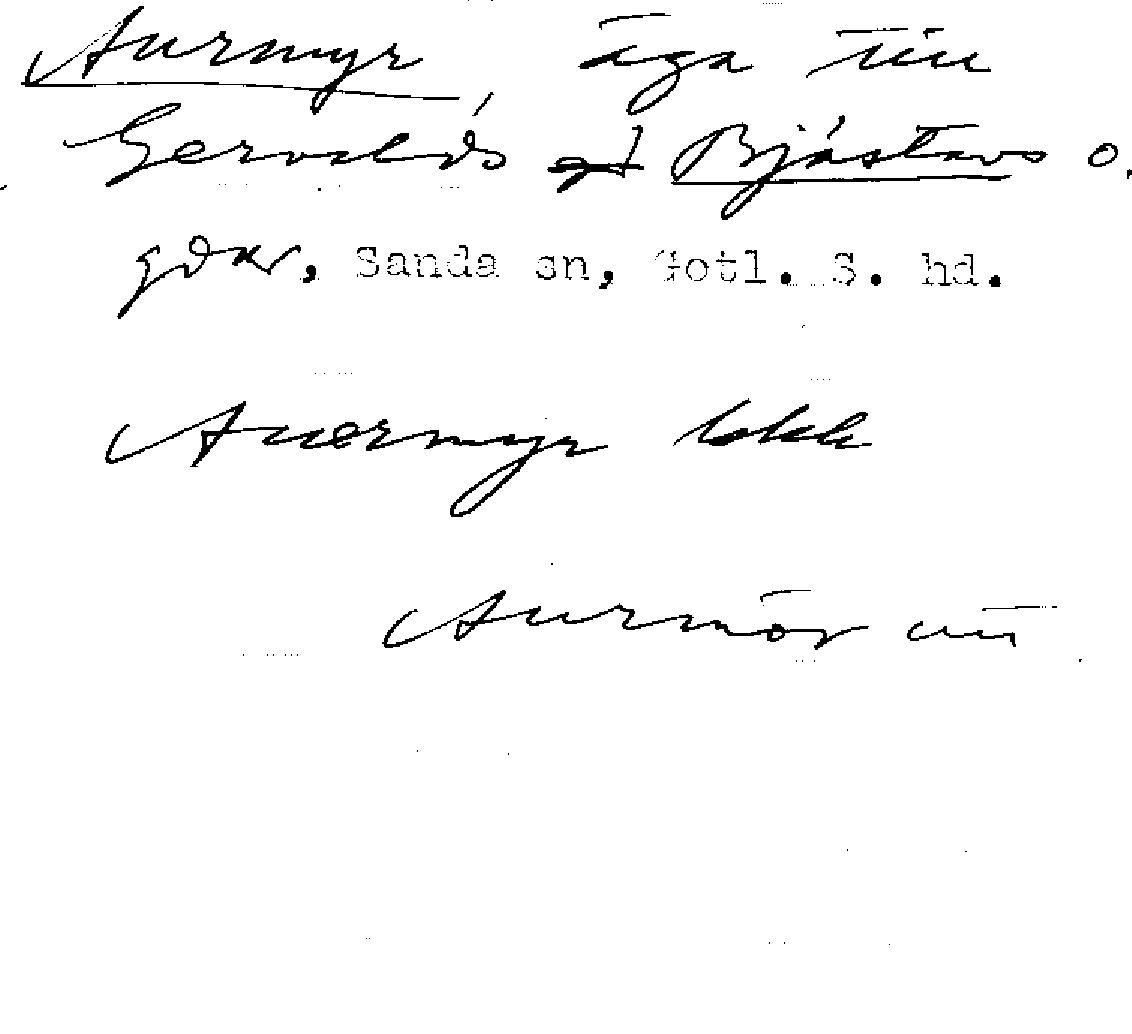 Aurmyr, äga till
Gervalds Bjästavs o.
gdar, Sanda sn, Gotl. S. hd.
Auermyr
Aurmör